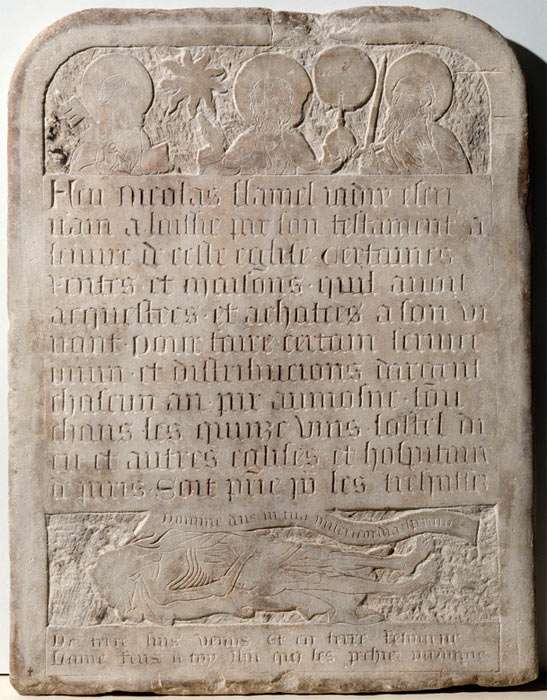 Feu Nicolas flamel iadis escri
uain a laissie par son testament a
leuure de ceste eglise certaines
rentes et maisons quil auoit
acquestees et achatees a son vi
uant pour faire certain seruice
diuin et distribucions dargent
chascun an par aumosne tou
chans les quinze vins lostel di
eu et autres eglises et hospitaux
a paris Soit prie les trespassez
domine deus in tua misericordia speraui
De terre suis venus et en terre retourne
Lame rens a toy ihu qui les pechiez pardonne